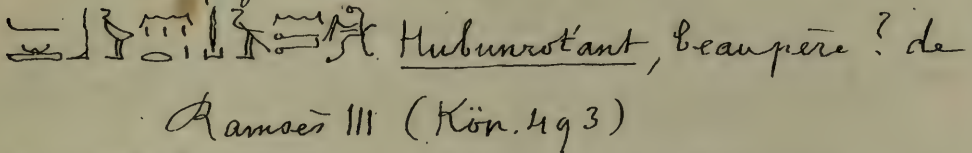 Hubunrot'ant, beaupère ? de
Ramsès III (Kön. 493)